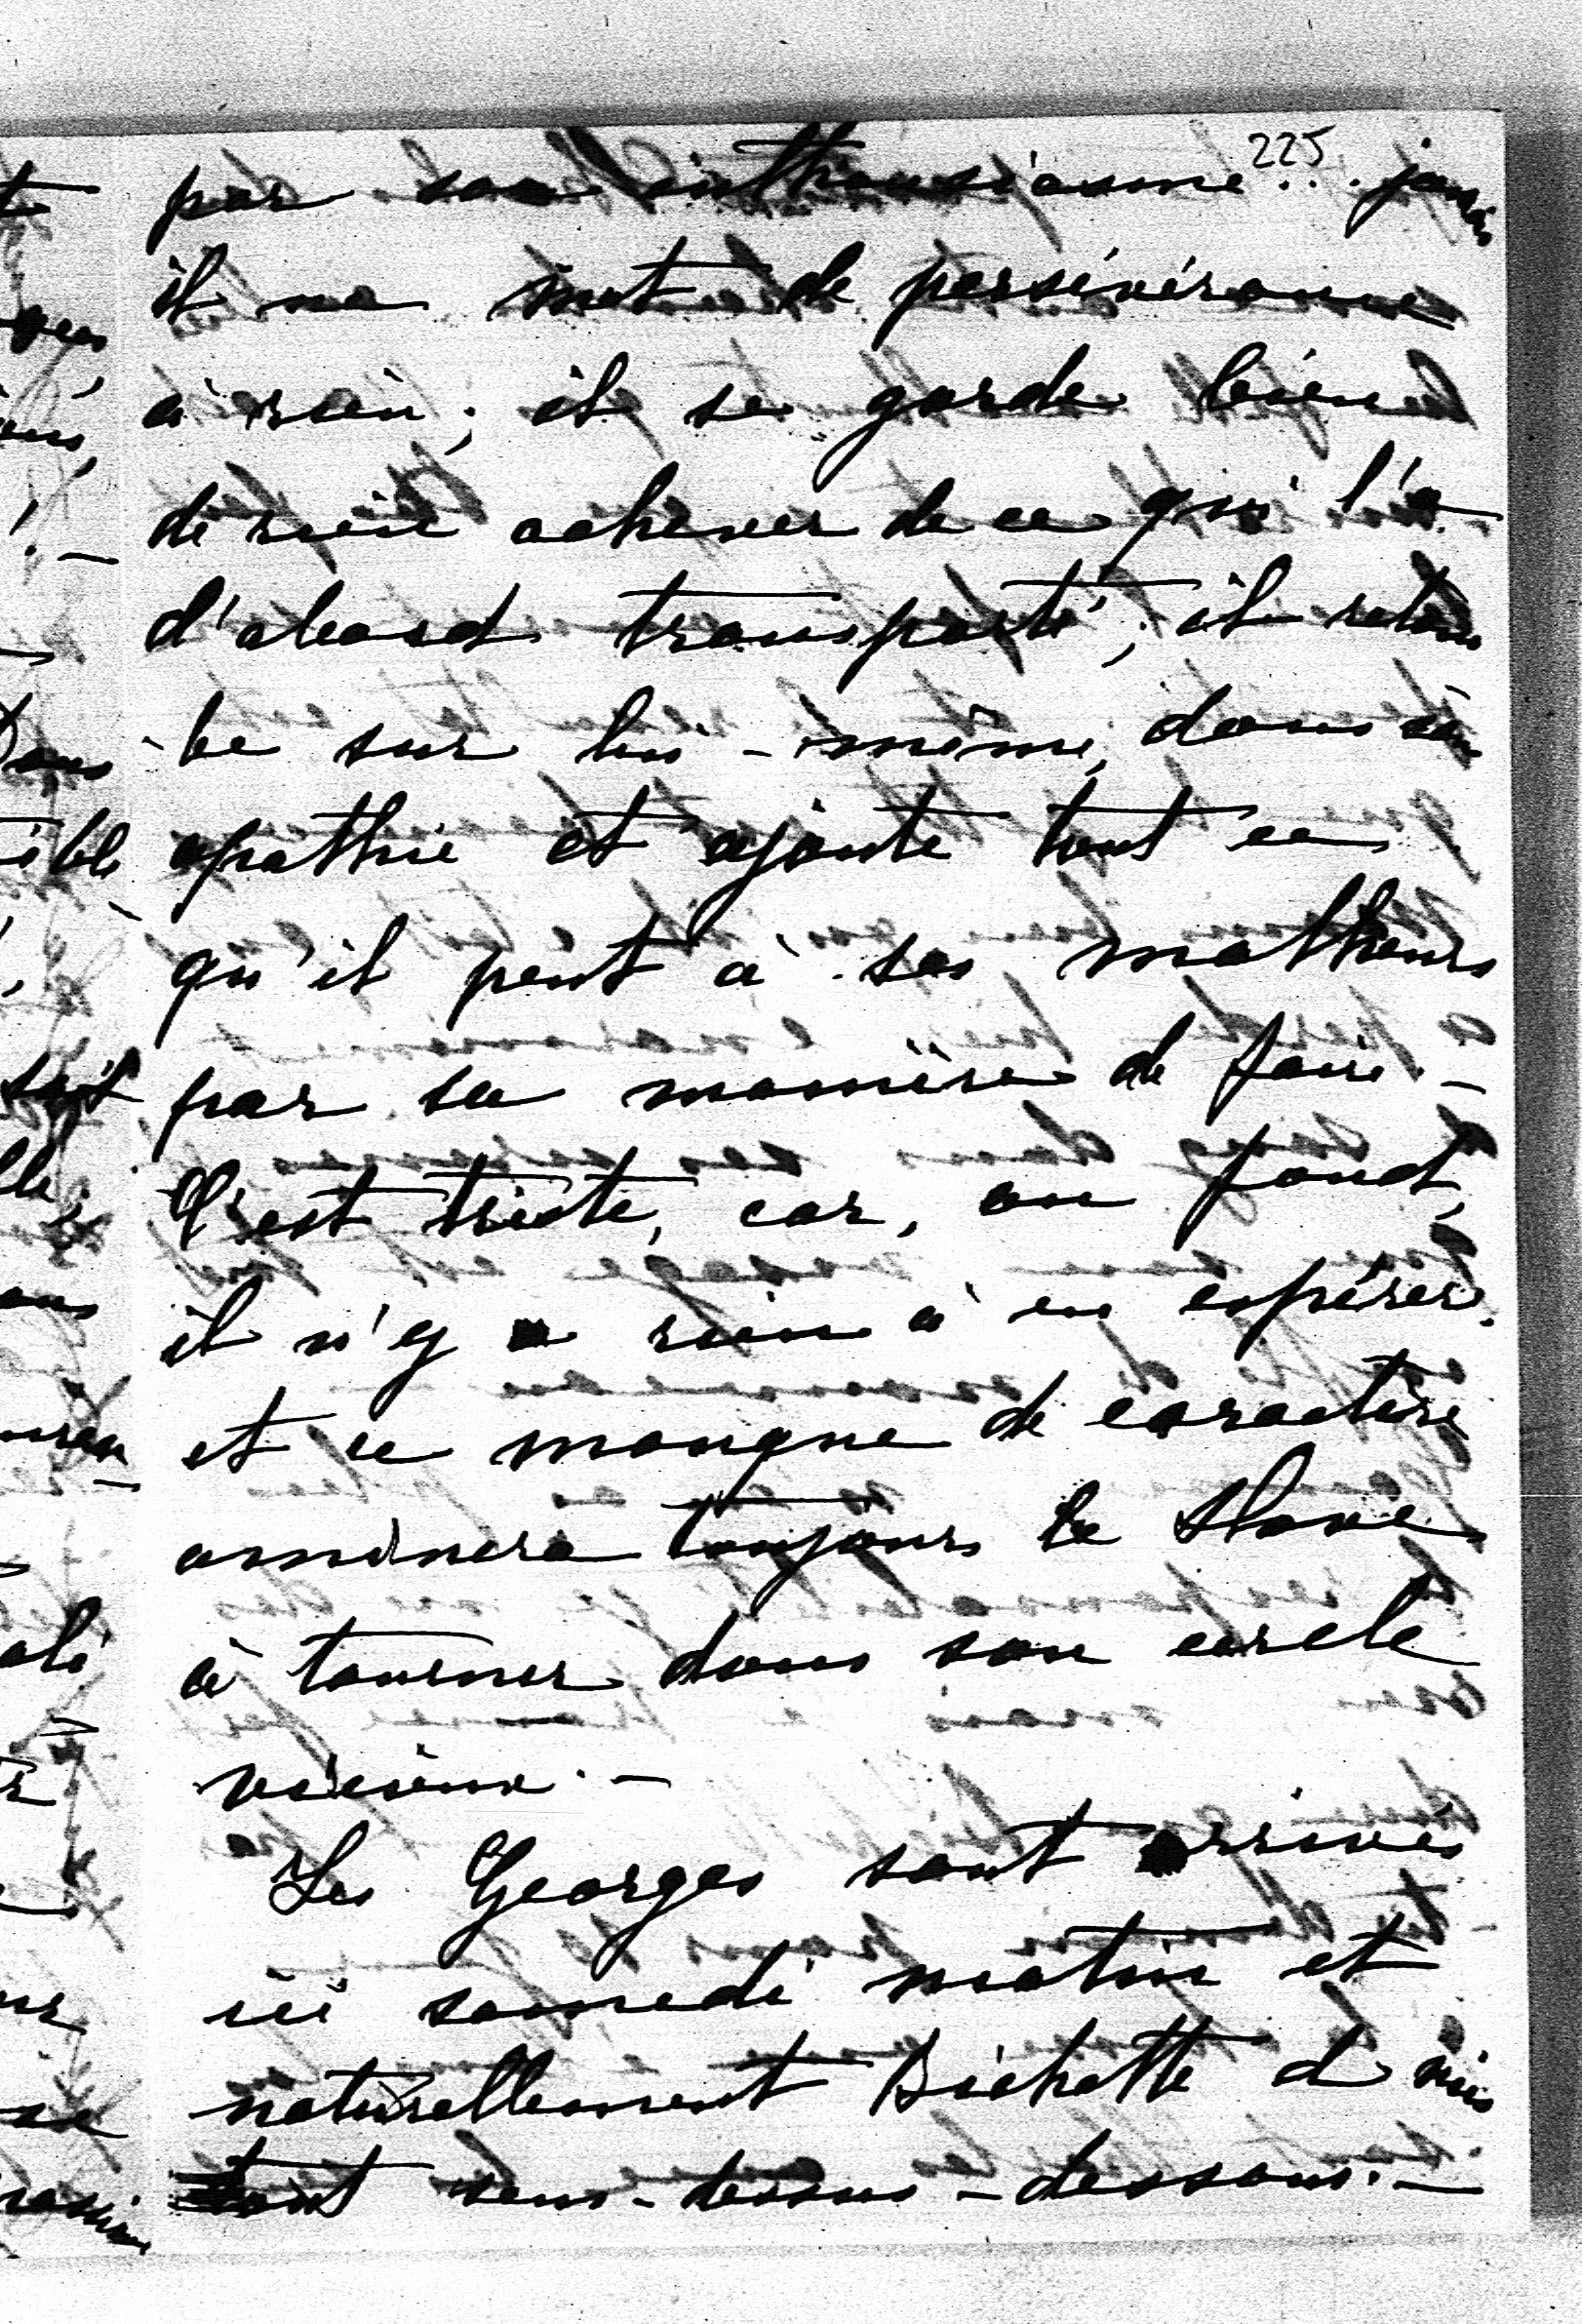 225
par son enthousiasme... jamais
il ne met de persévérance
à rien; il se garde bien
de rien achever de ce qui l'a
d'abord transporté; il retom
-be sur lui-même, dans son
apathie et ajoute tout ce
qu'il peut à ses malheurs
par sa manière de faire. -
C'est triste, car, au fond,
il n'y a rien à en espérer
et ce manque de caractère
amènera toujours le Slave
à tourner dans son cercle
vicieux. -
Les Georges sont arrivés
ici samedi matin et
naturellement Bichette a mis
tout sens-dessus-dessous. -